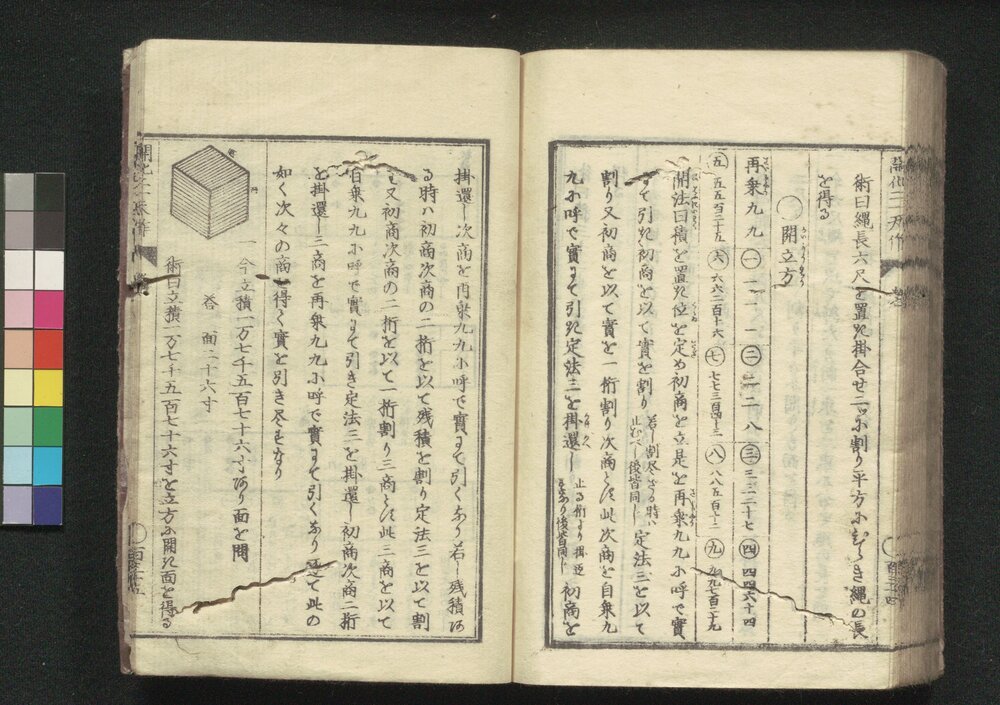 術曰繩長六尺を置き掛合せ二ッに割り平方にひらき繩の長
を得る
〇開立方
再乗九九 ㊀一一一 ㊁二二二八 ㊂三三三二十七 ㊃四四四六十四
㊄五五五百二十五 ㊅六六六二百十六 ㊆七七七三百四十三 ㊇八八八五百十二 ㊈九九九七百二十九
開法曰積を置き位を定め初商を立是を再乗九九に呼で實
にて引き初商を以て實を割り 若し割尽ざる時ハ 止むべし後皆同し 定法三を以て
割り又初商を以て實を一桁割り次商とす此次商を自乗九
九に呼で實にて引き定法三を掛還し 初商を
掛還し次商を再乗九九に呼で實にて引くなり若し残積ある
る時ハ初商次商の二桁を以て残積を割り定法三を以て割
り又初商次商の二桁を以て一桁割り三商とす此三商を以て
自乗九九に呼で實にて引き定法三を掛還し初商次商二桁
を掛還し三商を再乗九九に呼で實にて引くなり 此の
如く次々の商を得く實を引き尽すなり
一 今立積一万七千五百七十六寸あり面を問
答 面二十六寸
術曰立積一万七千五百七十六寸を立方に開き面を得る